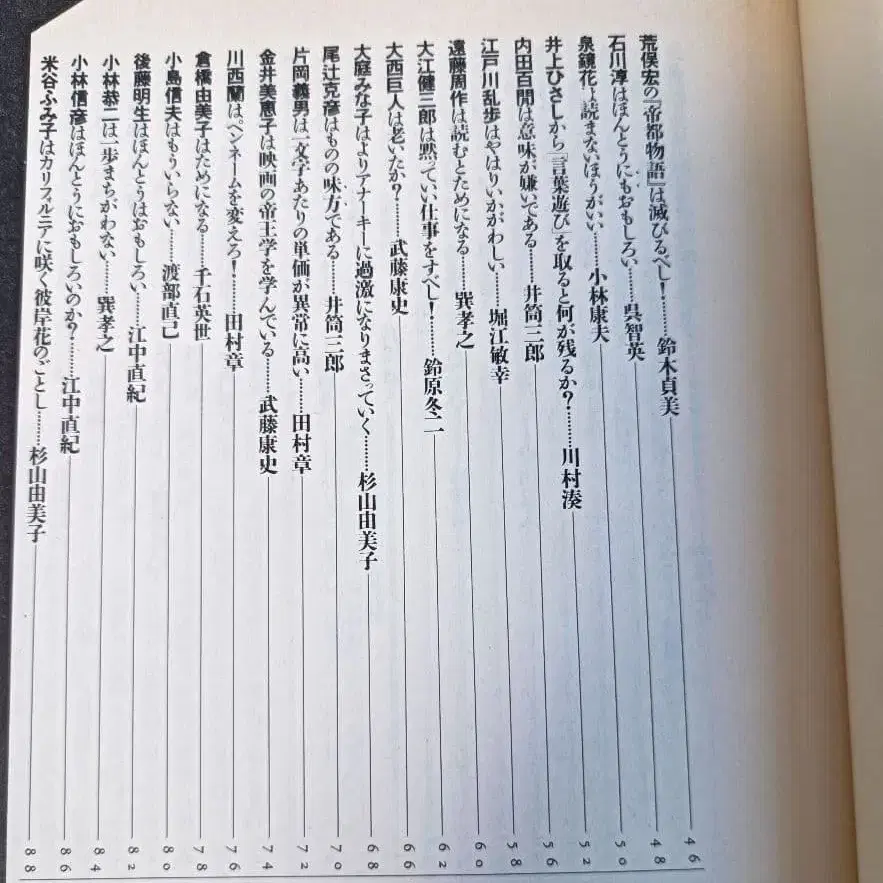 荒俣宏の『帝都物語』は滅びるべし！……鈴木貞美 46
石川淳はほんとうにもおもしろい……呉智英 48
泉鏡花は読まないほうがいい……小林康夫 50
井上ひさしから「言葉遊び」を取ると何が残るか？……川村湊 52
内田百閒は意味が嫌いである……井筒三郎 56
江戸川乱歩はやはりいかがわしい……堀江敏幸 58
遠藤周作は読むとためになる……巽孝之 60
大江健三郎は黙っていい仕事をすべし！……鈴原冬二 62
大西巨人は老いたか？……武藤康史 66
大庭みな子はよりアナーキーに過激になりまさっていく……杉山由美子 68
尾辻克彦はものの味方である……井筒三郎 70
片岡義男は一文字あたりの単価が異常に高い……田村章 72
金井美恵子は映画の帝王学を学んでいる……武藤康史 74
川西蘭は、ペンネームを変えろ！……田村章 76
倉橋由美子はためになる……千石英世 78
小島信夫はもういらない……渡部直己 80
後藤明生はほんとうはおもしろい……江中直紀 82
小林恭二は一歩まちがわない……巽孝之 84
小林信彦はほんとうにおもしろいのか？……江中直紀 86
米谷ふみ子はカリフォルニアに咲く彼岸花のごとし……杉山由美子 88